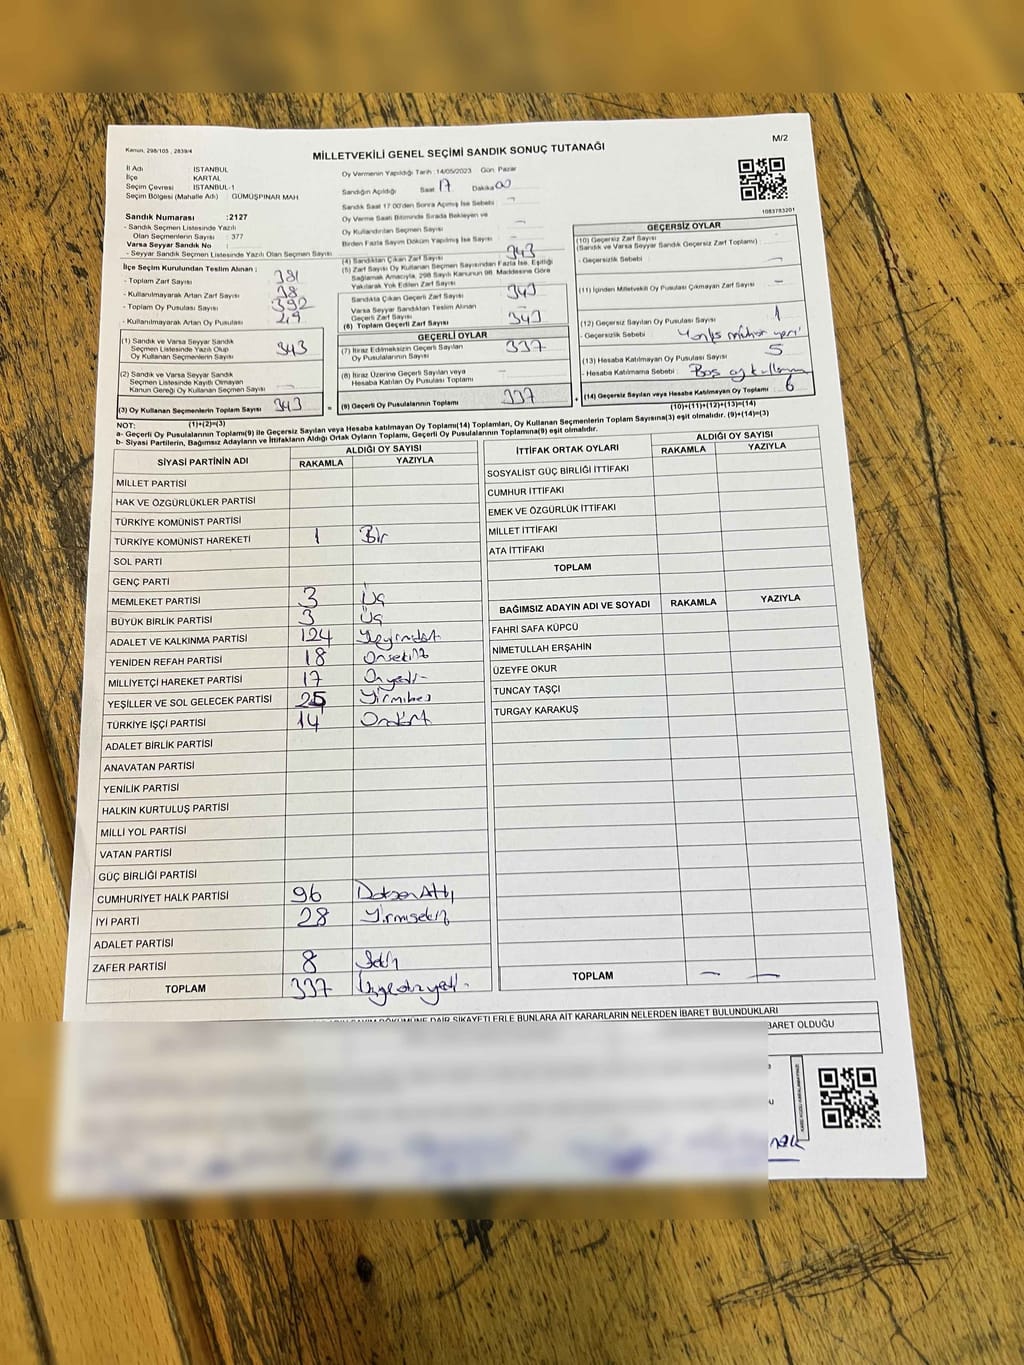 Kanun, 298/105 , 2839/4
M/2
MİLLETVEKİLİ GENEL SEÇİMİ SANDIK SONUÇ TUTANAĞI
İl Adı İSTANBUL
İlçe KARTAL
Seçim Çevresi İSTANBUL-1
Seçim Bölgesi (Mahalle Adı) GÜMÜŞPINAR MAH
Sandık Numarası :2127
- Sandık Seçmen Listesinde Yazılı
Olan Seçmenlerin Sayısı : 377
Varsa Seyyar Sandık No :
- Seyyar Sandık Seçmen Listesinde Yazılı Olan Seçmen Sayısı :
Oy Vermenin Yapıldığı Tarih :14/05/2023 Gün Pazar
Sandığın Açıldığı Saat 17 Dakika 00
Sandık Saat 17:00'den Sonra Açılmış İse Sebebi : -
Oy Verme Saati Bitiminde Sırada Bekleyen ve
Oy Kullandırılan Seçmen Sayısı -
Birden Fazla Sayım Döküm Yapılmış İse Sayısı : -
1083783201
İlçe Seçim Kurulundan Teslim Alınan ;
- Toplam Zarf Sayısı : 381
- Kullanılmayarak Artan Zarf Sayısı : 38
- Toplam Oy Pusulası Sayısı : 392
- Kullanılmayarak Artan Oy Pusulası : 49
(1) Sandık ve Varsa Seyyar Sandık
Seçmen Listesinde Yazılı Olup
Oy Kullanan Seçmenlerin Sayısı 343
(2) Sandık ve Varsa Seyyar Sandık
Seçmen Listesinde Kayıtlı Olmayan
Kanun Gereği Oy Kullanan Seçmen Sayısı -
(3) Oy Kullanan Seçmenlerin Toplam Sayısı 343
(1)+(2)=(3)
(4) Sandıktan Çıkan Zarf Sayısı 343
(5) Zarf Sayısı Oy Kullanan Seçmen Sayısından Fazla İse, Eşitliği
Sağlamak Amacıyla, 298 Sayılı Kanunun 98. Maddesine Göre
Yakılarak Yok Edilen Zarf Sayısı :
Sandıkta Çıkan Geçerli Zarf Sayısı 343
Varsa Seyyar Sandıktan Teslim Alınan
Geçerli Zarf Sayısı
(6) Toplam Geçerli Zarf Sayısı 343
GEÇERLİ OYLAR
(7) İtiraz Edilmeksizin Geçerli Sayılan
Oy Pusulalarının Sayısı 337
(8) İtiraz Üzerine Geçerli Sayılan veya
Hesaba Katılan Oy Pusulası Toplamı -
(9) Geçerli Oy Pusulalarının Toplamı 337
GEÇERSİZ OYLAR
(10) Geçersiz Zarf Sayısı
(Sandık ve Varsa Seyyar Sandık Geçersiz Zarf Toplamı) : -
- Geçersizlik Sebebi : -
(11) İçinden Milletvekili Oy Pusulası Çıkmayan Zarf Sayısı : -
(12) Geçersiz Sayılan Oy Pusulası Sayısı : 1
- Geçersizlik Sebebi : Yanlış mühür yeri
(13) Hesaba Katılmayan Oy Pusulası Sayısı : 5
- Hesaba Katılmama Sebebi : Boş oy kullanma
(14) Geçersiz Sayılan veya Hesaba Katılmayan Oy Toplamı : 6
(10)+(11)+(12)+(13)=(14)
NOT:
a- Geçerli Oy Pusulalarının Toplamı(9) ile Geçersiz Sayılan veya Hesaba katılmayan Oy Toplamı(14) Toplamları, Oy Kullanan Seçmenlerin Toplam Sayısına(3) eşit olmalıdır. (9)+(14)=(3)
b- Siyasi Partilerin, Bağımsız Adayların ve İttifakların Aldığı Ortak Oyların Toplamı, Geçerli Oy Pusulalarının Toplamına(9) eşit olmalıdır.
SİYASİ PARTİNİN ADI ALDIĞI OY SAYISI
RAKAMLA YAZIYLA
MİLLET PARTİSİ
HAK VE ÖZGÜRLÜKLER PARTİSİ
TÜRKİYE KOMÜNİST PARTİSİ
TÜRKİYE KOMÜNİST HAREKETİ 1 Bir
SOL PARTİ
GENÇ PARTİ
MEMLEKET PARTİSİ 3 Üç
BÜYÜK BİRLİK PARTİSİ 3 Üç
ADALET VE KALKINMA PARTİSİ 124
YENİDEN REFAH PARTİSİ 18 Onsekiz
MİLLİYETÇİ HAREKET PARTİSİ 17 Onyedi
YEŞİLLER VE SOL GELECEK PARTİSİ 25 Yirmibeş
TÜRKİYE İŞÇİ PARTİSİ 14 Ondört
ADALET BİRLİK PARTİSİ
ANAVATAN PARTİSİ
YENİLİK PARTİSİ
HALKIN KURTULUŞ PARTİSİ
MİLLİ YOL PARTİSİ
VATAN PARTİSİ
GÜÇ BİRLİĞİ PARTİSİ
CUMHURİYET HALK PARTİSİ 96 Doksan Altı
İYİ PARTİ 28 Yirmisekiz
ADALET PARTİSİ
ZAFER PARTİSİ 8 Sekiz
TOPLAM 337
İTTİFAK ORTAK OYLARI ALDIĞI OY SAYISI
RAKAMLA YAZIYLA
SOSYALİST GÜÇ BİRLİĞİ İTTİFAKI
CUMHUR İTTİFAKI
EMEK VE ÖZGÜRLÜK İTTİFAKI
MİLLET İTTİFAKI
ATA İTTİFAKI
TOPLAM
BAĞIMSIZ ADAYIN ADI VE SOYADI RAKAMLA YAZIYLA
FAHRİ SAFA KÜPCÜ
NİMETULLAH ERŞAHİN
ÜZEYFE OKUR
TUNCAY TAŞÇI
TURGAY KARAKUŞ
TOPLAM - -
DÖKÜMÜNE DAİR ŞİKAYETLERLE BUNLARA AİT KARARLARIN NELERDEN İBARET BULUNDUKLARI
İBARET OLDUĞU